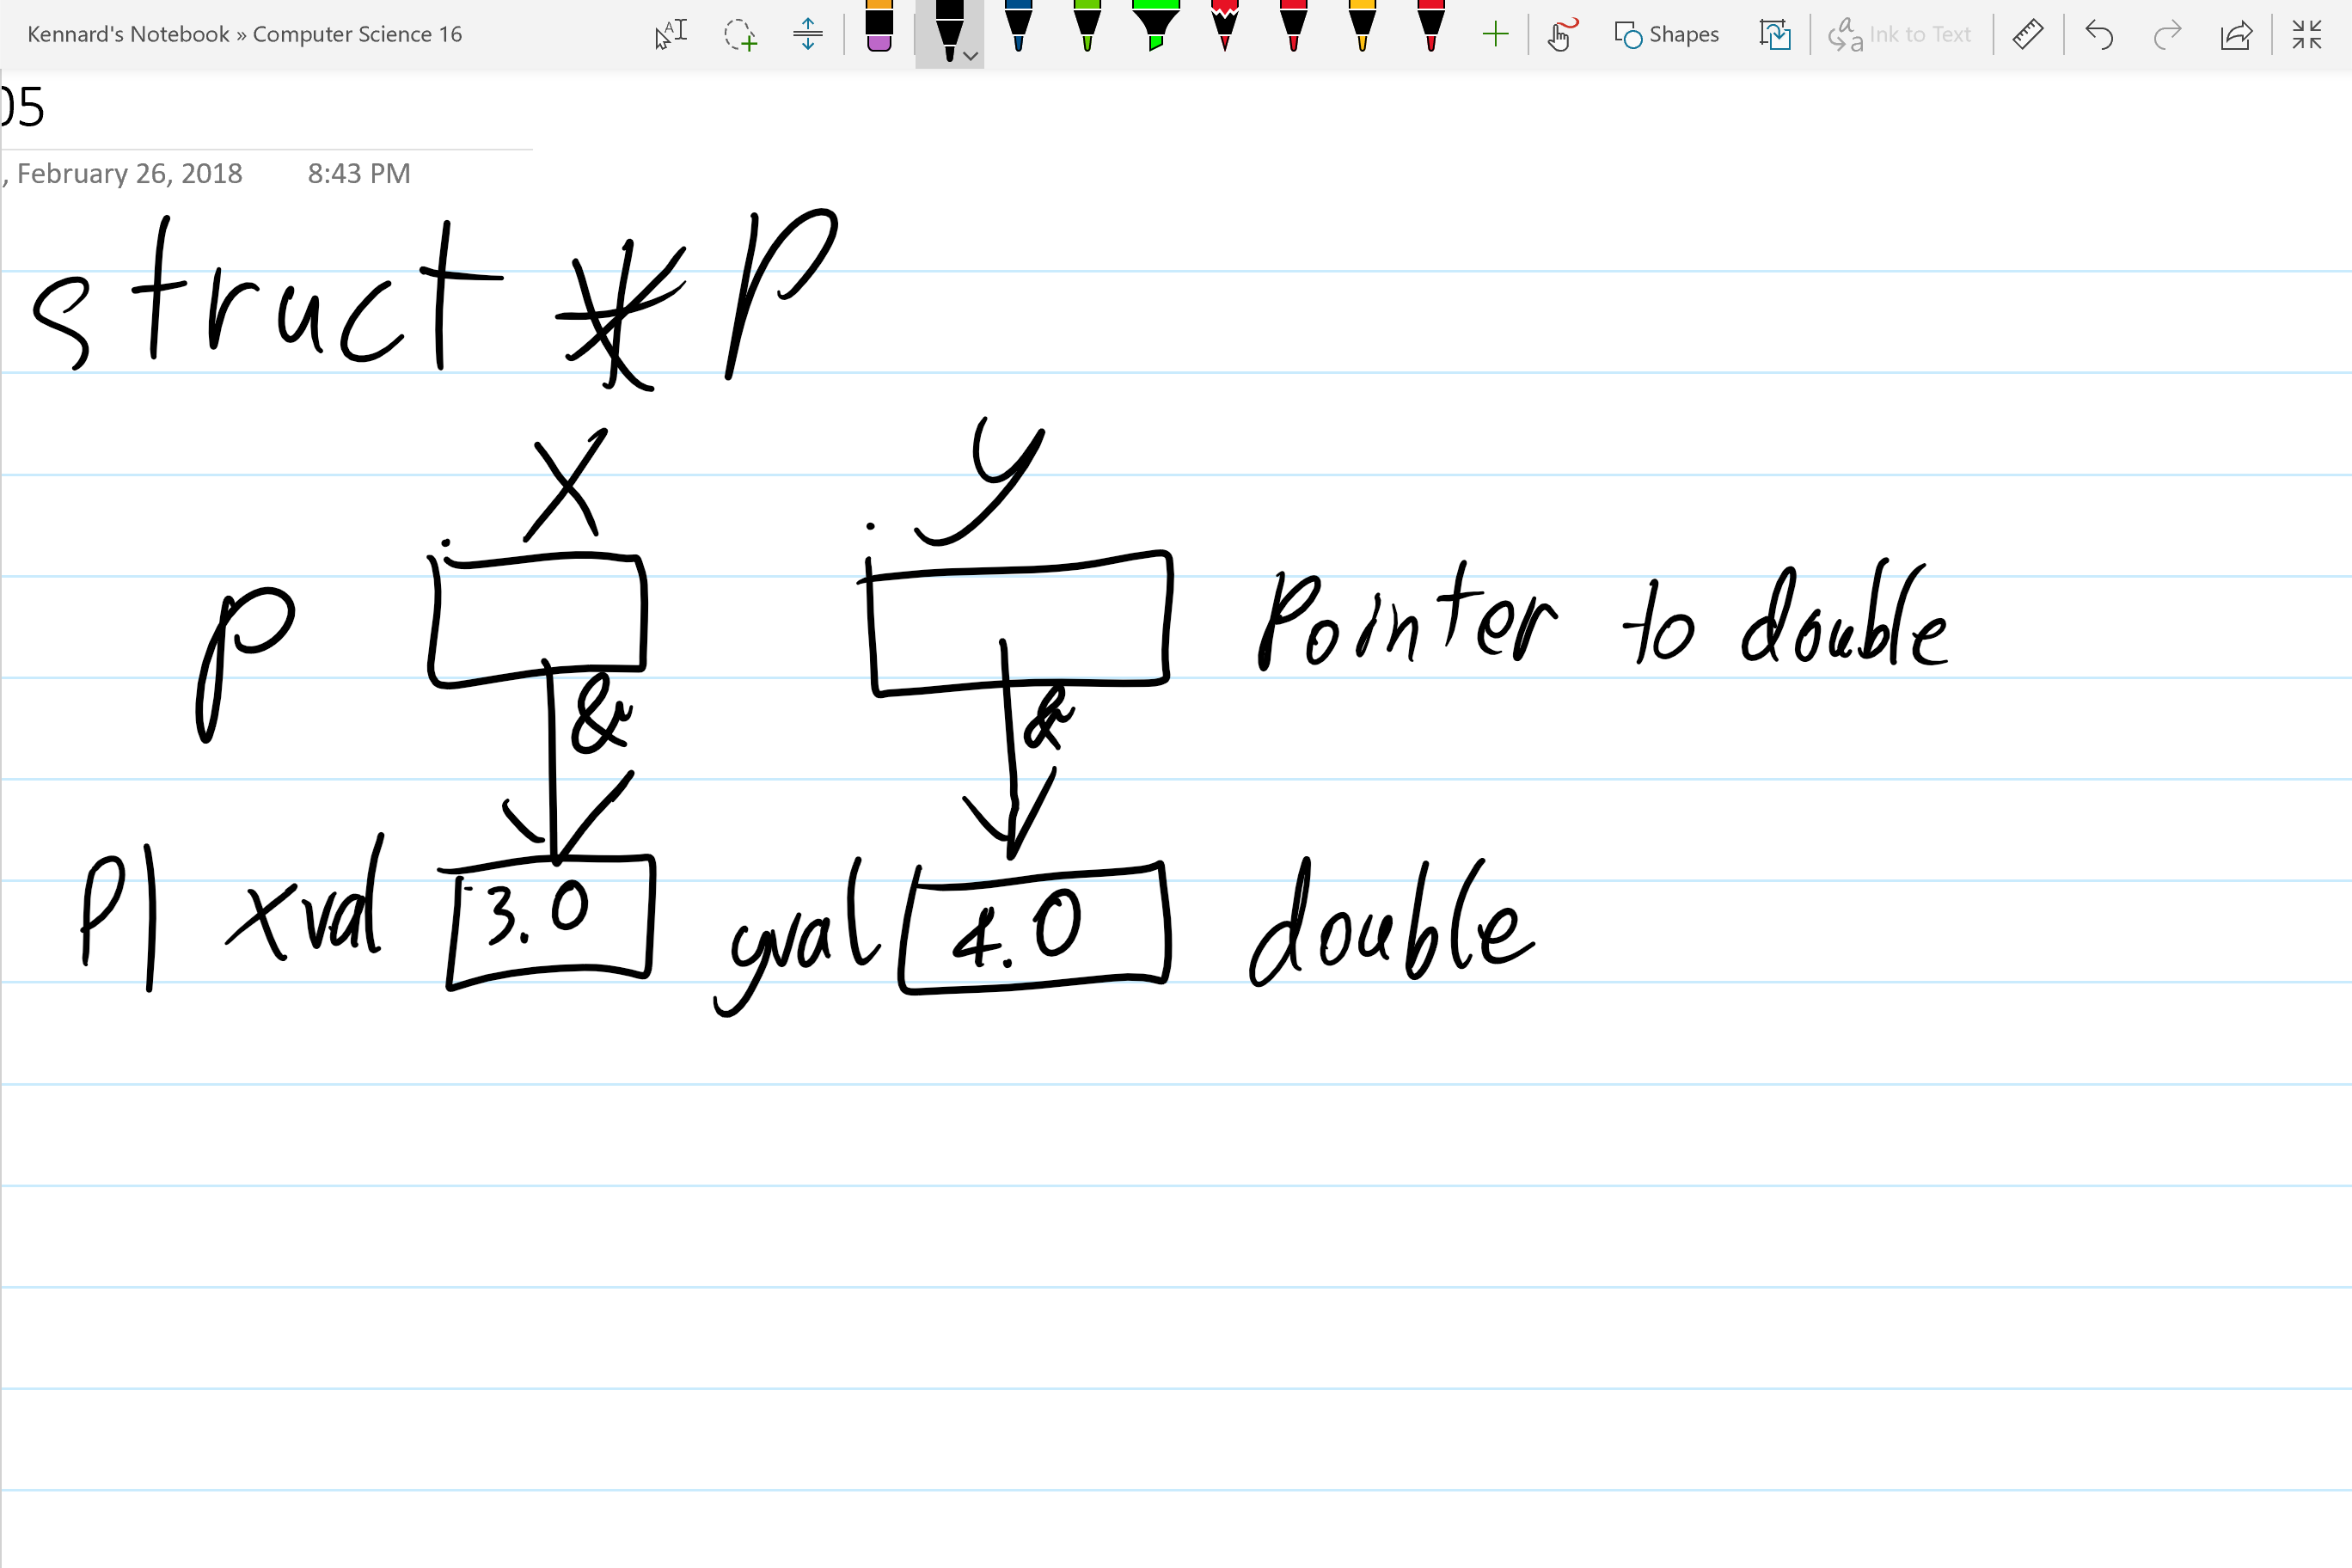 Kennard's Notebook » Computer Science 16
Shapes
Ink to Text
05
, February 26, 2018 8:43 PM
struct * P
x y
p . . Pointer to double
& &
P1 xval 3.0 yval 4.0 double